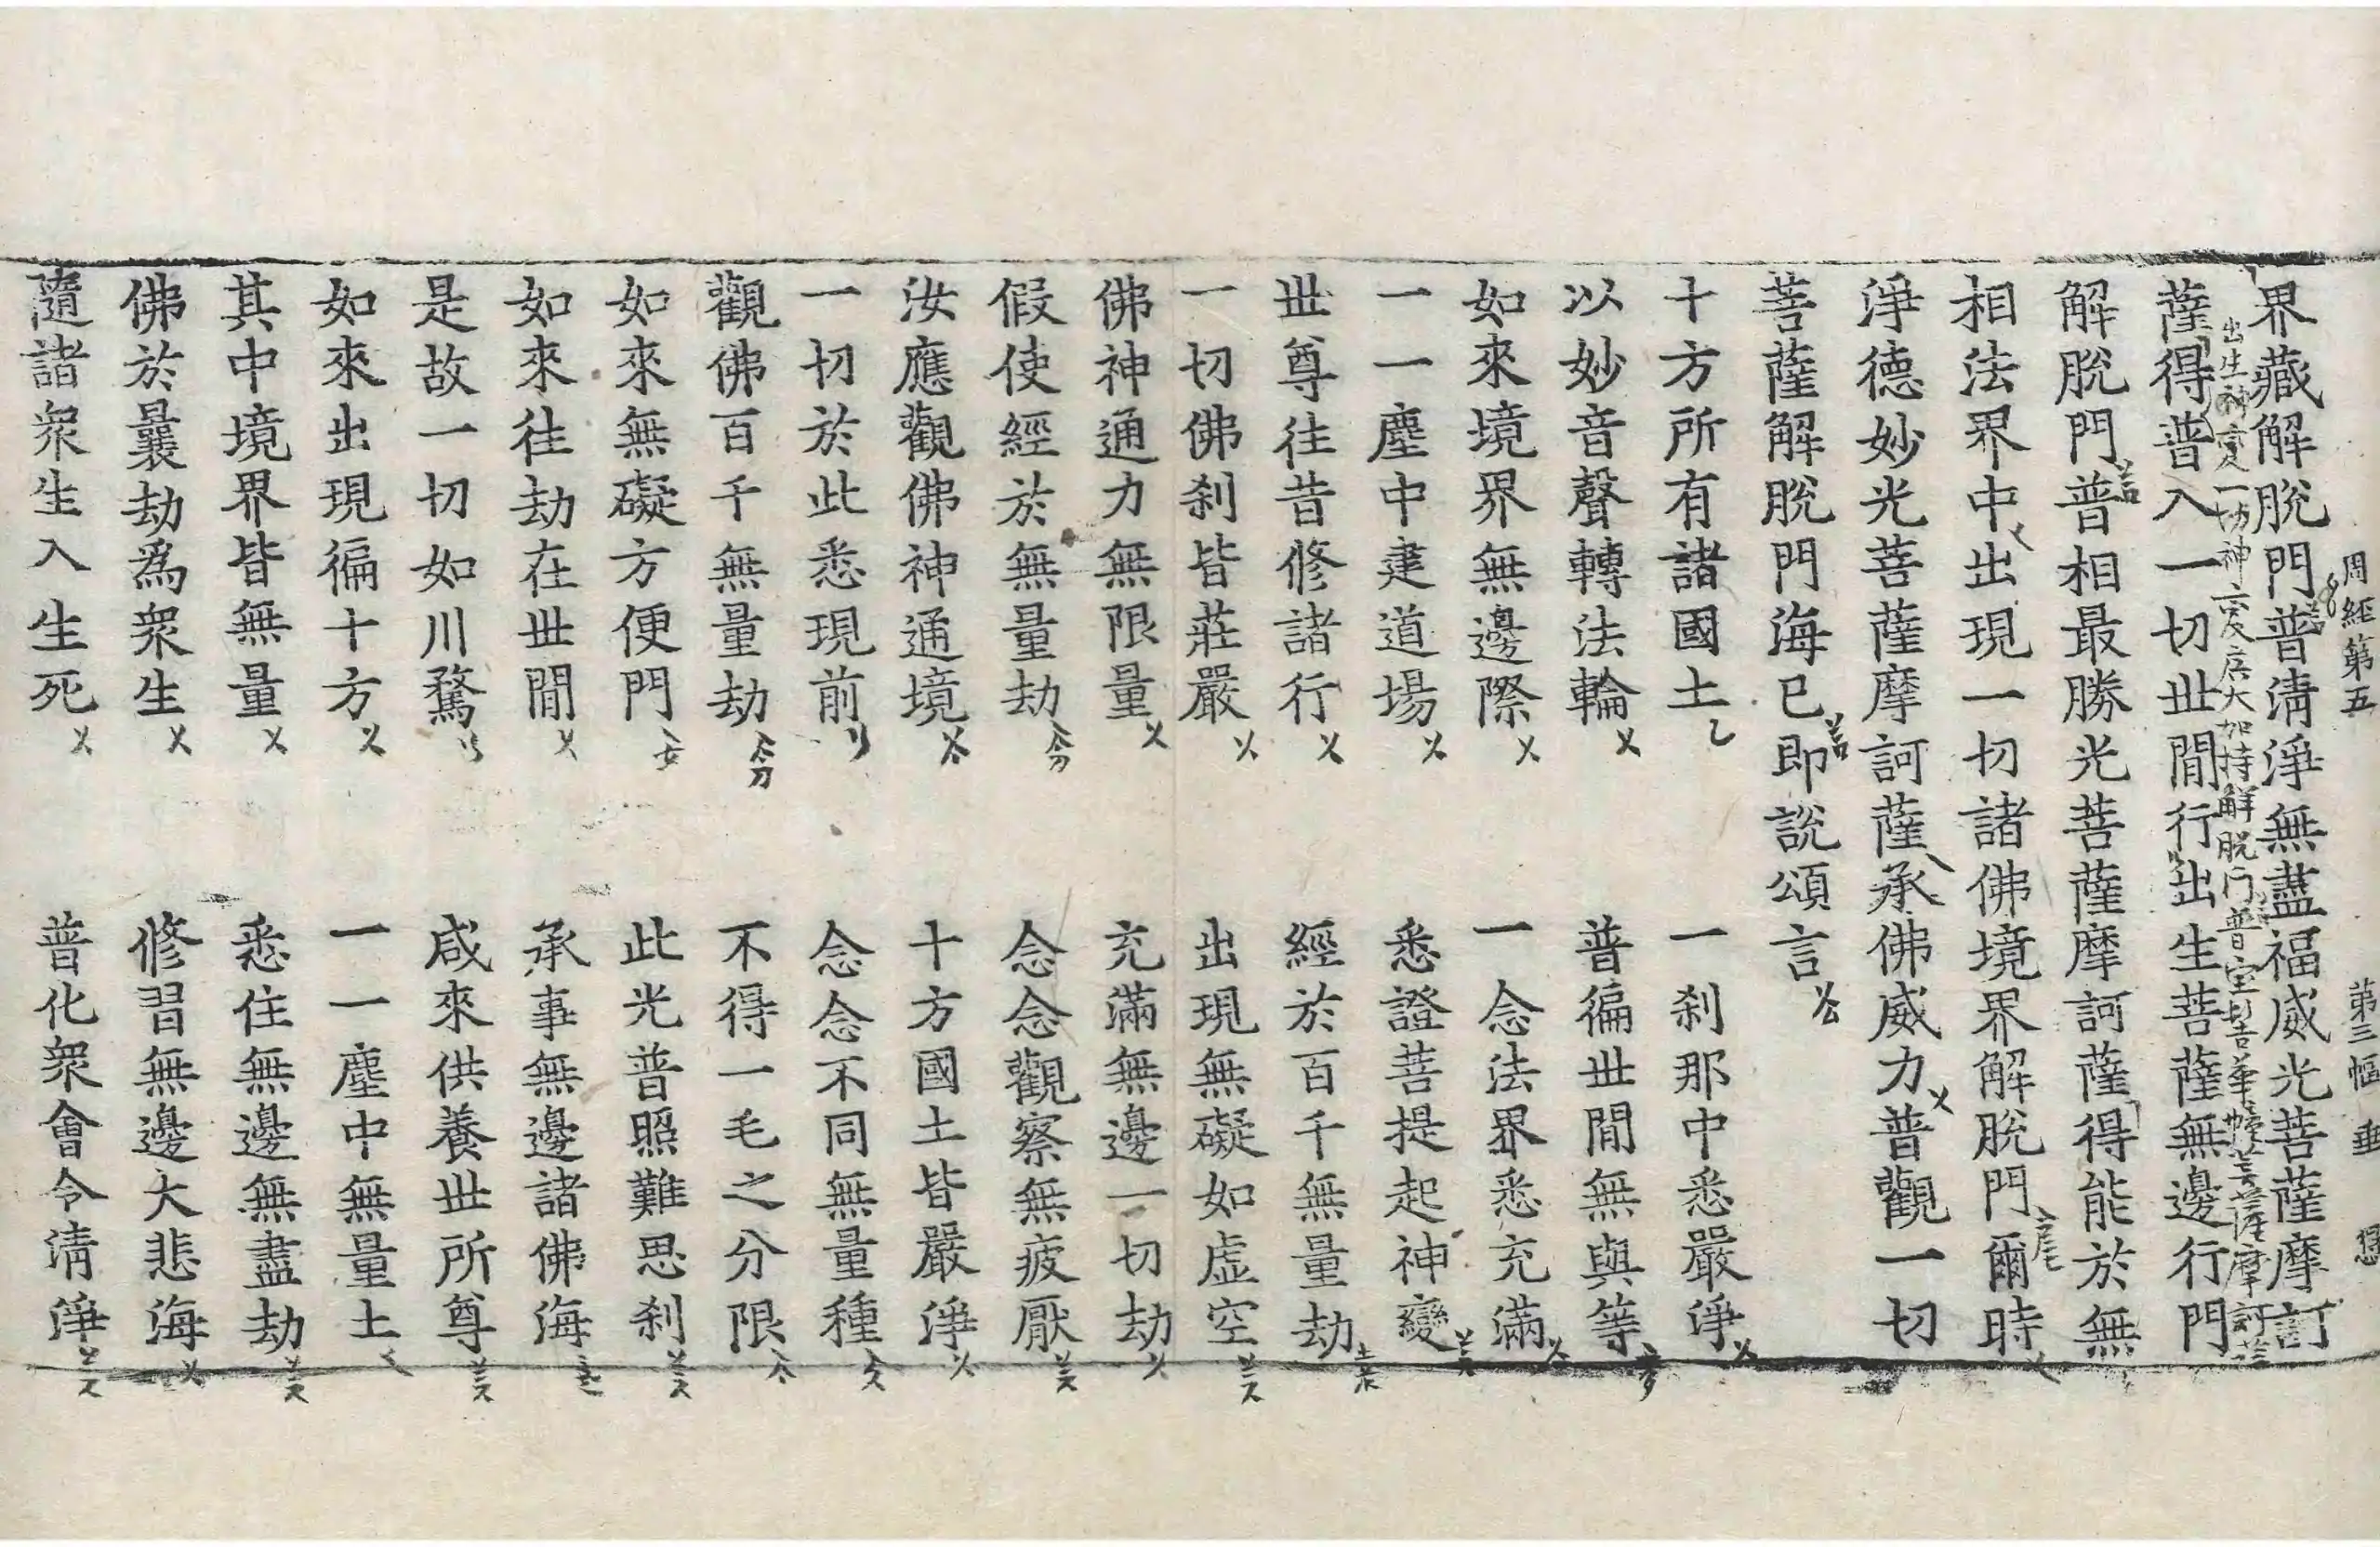 周經第五 第三幅 垂
界藏解脫門普淸淨無盡福威光菩薩摩訶
出生神変一切神変広大加持解脫门普宝髻華幢菩薩摩訶菩
薩得普入一切世間行出生菩薩無邊行門
解脫門普相最勝光菩薩摩訶薩得能於無
相法界中出現一切諸佛境界解脫門爾時
淨德妙光菩薩摩訶薩承佛威力普觀一切
菩薩解脫門海已即說頌言
十方所有諸國土 一刹那中悉嚴淨
以妙音聲轉法輪 普徧世間無與等
如來境界無邊際 一念法界悉充滿
一一塵中建道場 悉證菩提起神變
世尊往昔修諸行 經於百千無量劫
一切佛刹皆莊嚴 出現無礙如虛空
佛神通力無限量 充滿無邊一切劫
假使經於無量劫 念念觀察無疲厭
汝應觀佛神通境 十方國土皆嚴淨
一切於此悉現前 念念不同無量種
觀佛百千無量劫 不得一毛之分限
如來無礙方便門 此光普照難思刹
如來往劫在世間 承事無邊諸佛海
是故一切如川騖 咸來供養世所尊
如來出現徧十方 一一塵中無量土
其中境界皆無量 悉住無邊無盡劫
佛於曩劫爲衆生 修習無邊大悲海
隨諸衆生入生死 普化衆會令淸淨